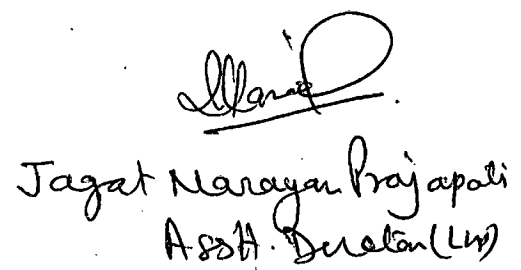 Jagat Narayan Prajapati
Asstt. Director